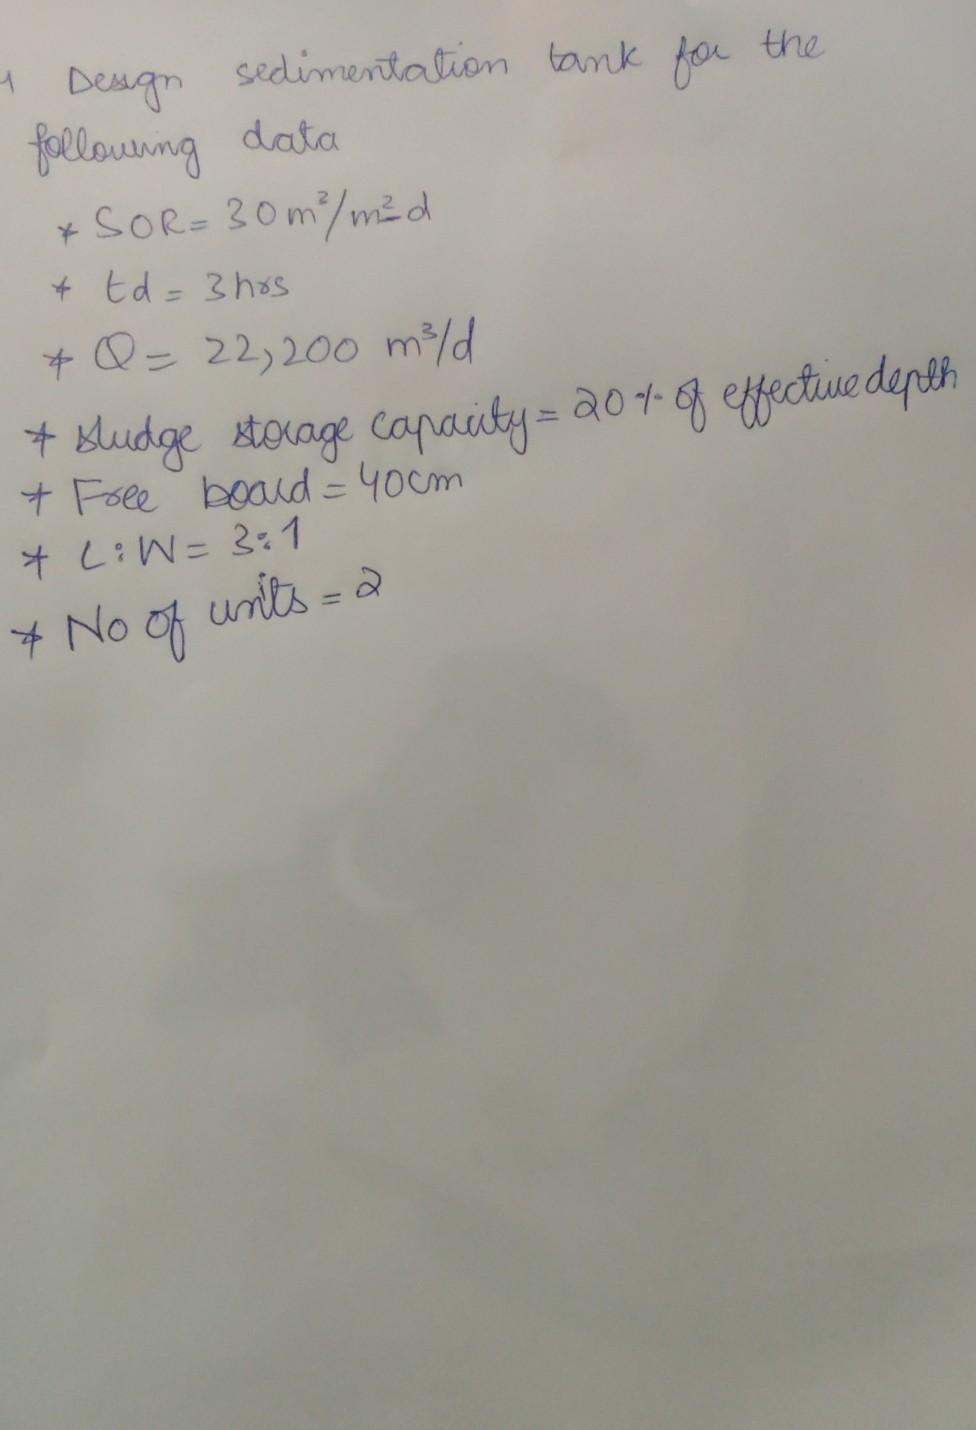 1 Design sedimentation tank for the
following data
* SOR = 30 m³/m²-d
* td = 3 hrs
* Q = 22,200 m³/d
* sludge storage capacity = 20% of effective depth
* Free board = 40cm
* L:W = 3:1
* No of units = 2